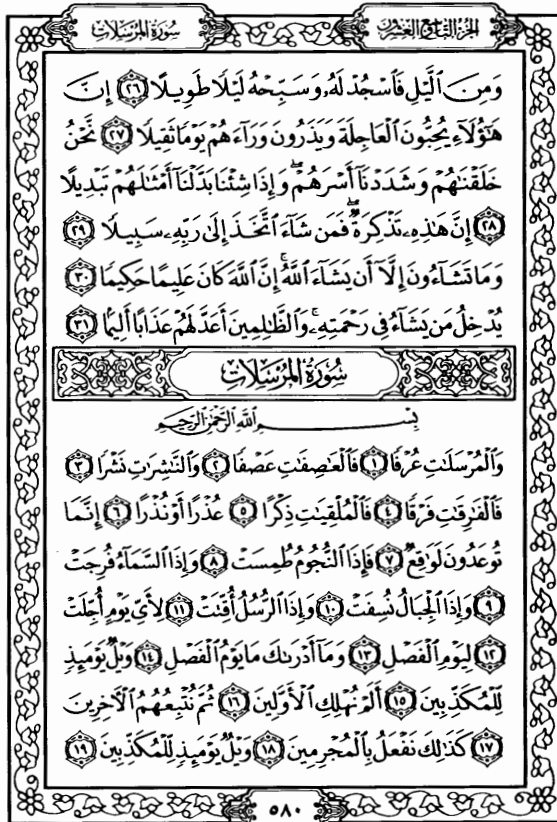 الجزء التاسع والعشرون
سورة المرسلات
وَمِنَ ٱلَّيْلِ فَٱسْجُدْ لَهُۥ وَسَبِّحْهُ لَيْلًا طَوِيلًا ٢٦ إِنَّ
هَٰٓؤُلَآءِ يُحِبُّونَ ٱلْعَاجِلَةَ وَيَذَرُونَ وَرَآءَهُمْ يَوْمًا ثَقِيلًا ٢٧ نَّحْنُ
خَلَقْنَٰهُمْ وَشَدَدْنَآ أَسْرَهُمْ ۖ وَإِذَا شِئْنَا بَدَّلْنَآ أَمْثَٰلَهُمْ تَبْدِيلًا
٢٨ إِنَّ هَٰذِهِۦ تَذْكِرَةٌ ۖ فَمَن شَآءَ ٱتَّخَذَ إِلَىٰ رَبِّهِۦ سَبِيلًا ٢٩
وَمَا تَشَآءُونَ إِلَّآ أَن يَشَآءَ ٱللَّهُ ۚ إِنَّ ٱللَّهَ كَانَ عَلِيمًا حَكِيمًا ٣٠
يُدْخِلُ مَن يَشَآءُ فِى رَحْمَتِهِۦ ۚ وَٱلظَّٰلِمِينَ أَعَدَّ لَهُمْ عَذَابًا أَلِيمًۢا ٣١
سُورَةُ المُرْسَلَات
بِسْمِ ٱللَّهِ ٱلرَّحْمَٰنِ ٱلرَّحِيمِ
وَٱلْمُرْسَلَٰتِ عُرْفًا ١ فَٱلْعَٰصِفَٰتِ عَصْفًا ٢ وَٱلنَّٰشِرَٰتِ نَشْرًا ٣
فَٱلْفَٰرِقَٰتِ فَرْقًا ٤ فَٱلْمُلْقِيَٰتِ ذِكْرًا ٥ عُذْرًا أَوْ نُذْرًا ٦ إِنَّمَا
تُوعَدُونَ لَوَٰقِعٌ ٧ فَإِذَا ٱلنُّجُومُ طُمِسَتْ ٨ وَإِذَا ٱلسَّمَآءُ فُرِجَتْ
٩ وَإِذَا ٱلْجِبَالُ نُسِفَتْ ١٠ وَإِذَا ٱلرُّسُلُ أُقِّتَتْ ١١ لِأَىِّ يَوْمٍ أُجِّلَتْ
١٢ لِيَوْمِ ٱلْفَصْلِ ١٣ وَمَآ أَدْرَىٰكَ مَا يَوْمُ ٱلْفَصْلِ ١٤ وَيْلٌ يَوْمَئِذٍ
لِّلْمُكَذِّبِينَ ١٥ أَلَمْ نُهْلِكِ ٱلْأَوَّلِينَ ١٦ ثُمَّ نُتْبِعُهُمُ ٱلْءَاخِرِينَ
١٧ كَذَٰلِكَ نَفْعَلُ بِٱلْمُجْرِمِينَ ١٨ وَيْلٌ يَوْمَئِذٍ لِّلْمُكَذِّبِينَ ١٩
٥٨٠